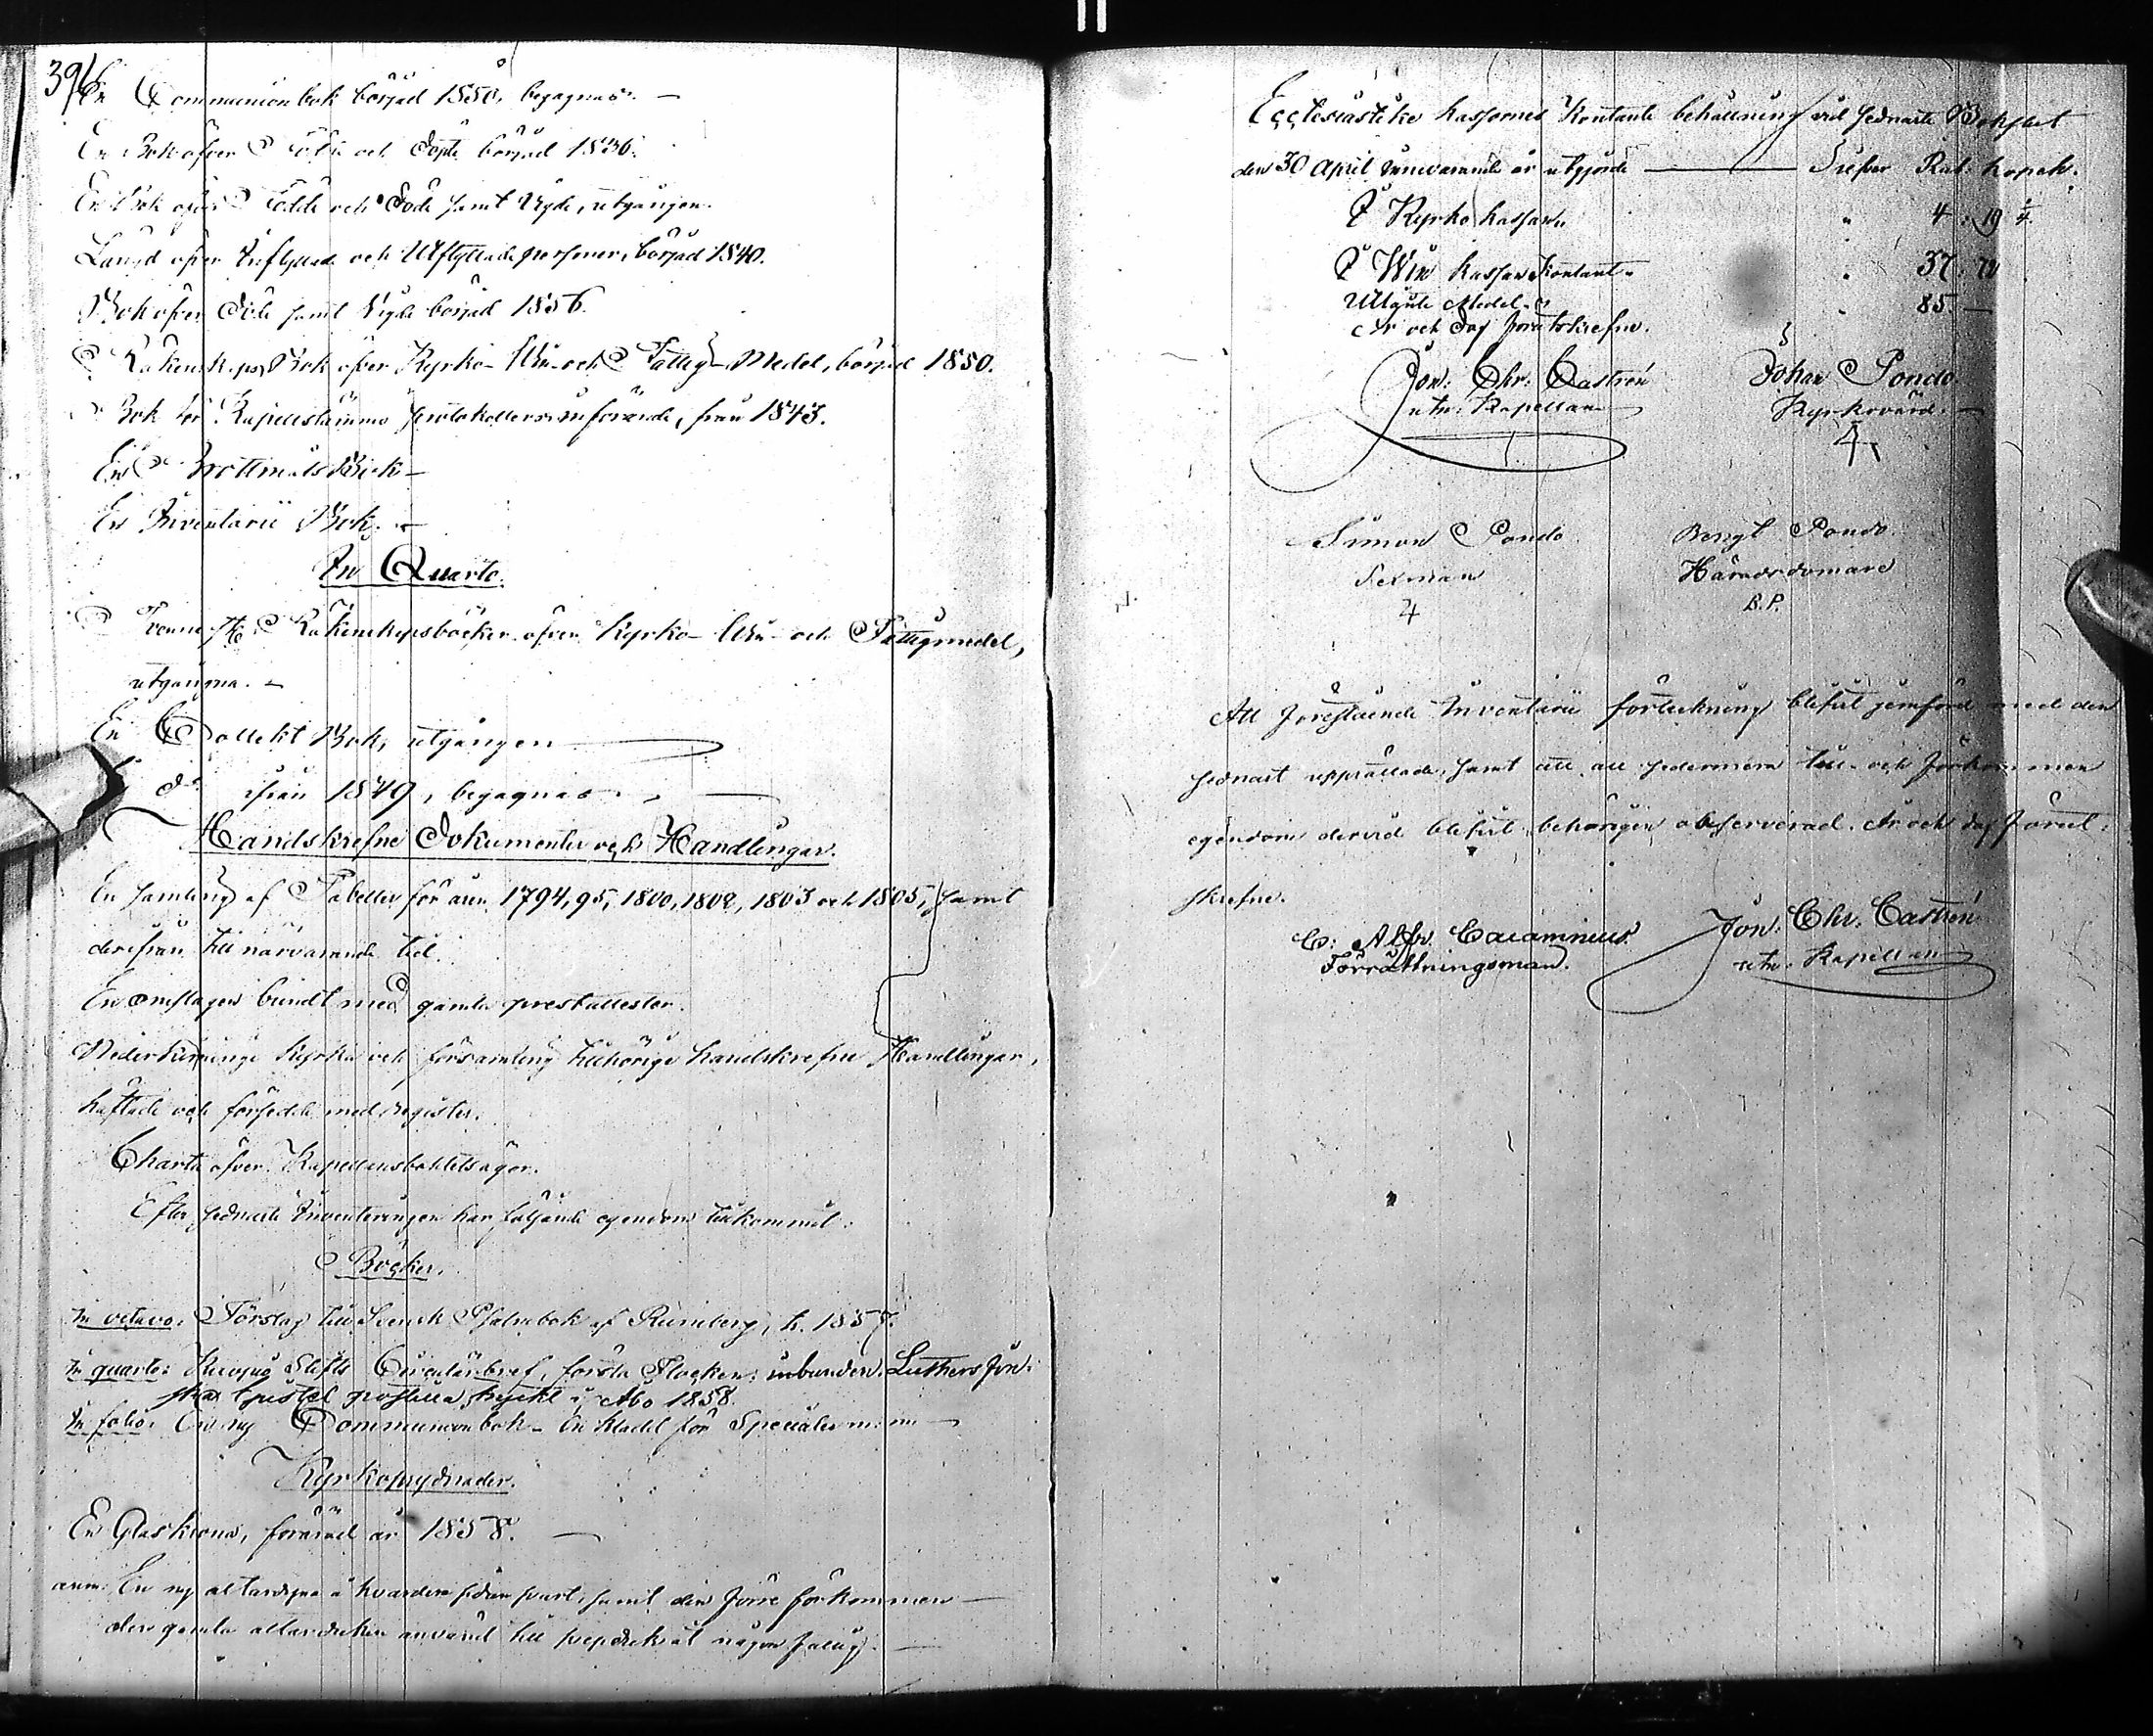 396
En Communionbok börjad 1850, begagnas. —
En Bok öfver Födde och Döpte börjad 1836.
En Bok öfver Födde och Döde samt Vigde, utgången.
Längd öfver Inflyttade och Utflyttade personer, börjad 1840.
Bok öfver Döde samt Vigde börjad 1856.
Räkenskaps Bok öfver Kyrko- Vin- och Fattig-Medel, börjad 1850.
Bok för Kapellstämmo protokollers införande, från 1843.
En Brottmåls Bok —
En Inventarii Bok. —
In Quarto.
Trenne st: Räkenskapsböcker öfver Kyrko- Vin- och Fattigmedel,
utgångna. —
En Collekt Bok, utgången —
d:o ifrån 1849, begagnas —
Handskrefne Dokumenter och Handlingar.
En samling af Tabeller för åren 1794, 95, 1800, 1802, 1803 och 1805, samt
derifrån till närvarande tid.
En omslagen bundt med gamla prestattester.
Nederkimminge Kyrka och församling tillhörige handskrefne Handlingar,
häftade och försedde med register.
Charta öfver Kapellansbohlets ägor.
Efter sednaste Inventeringen har följande egendom tillkommit:
Böcker.
In octavo: Förslag till Svensk Psalmbok af Runeberg, h. 1857.
In quarto: Kuopio Stifts Circulärbref, första Flocken: inbunden. Luthers
postilla, tryckt i Åbo 1858.
In folio: En ny Communionbok - En kladd för
Kyrkoprydnader.
En Glaskrona, förärad år 1858. —
anm: En ny altardyna å hvardera sidan svart, samt den förre förkommen —
den gamla altarduken använd till
Ecclesiastike kassornes Kontante behållning vid sednaste Bokslut
den 30 April innevarande år utgjorde — Silfver Rub: kopek.
I Kyrko kassan " 4: 19 1/4
I Win kassan Kontant - " 37: 72
Utlånte Medel - " 85. —
År och dag förutskrefne.
Jon: Chr: Castrén Johan Pondo
utn: Kapellan Kyrkovärd. —
Simon Pondo Bengt Pondo
Sexman Häradsdomare
B.P.
Att förestående Inventarii förteckning blifvit jemförd med den
sednast upprättade, samt att all sedermera till- och förkommen
egendom dervid blifvit behörigen observerad. År och dag förut-
skrefne.
C: Alfr. Calamnius Jon: Chr: Castrén
Förrättningsman. utn: Kapellan